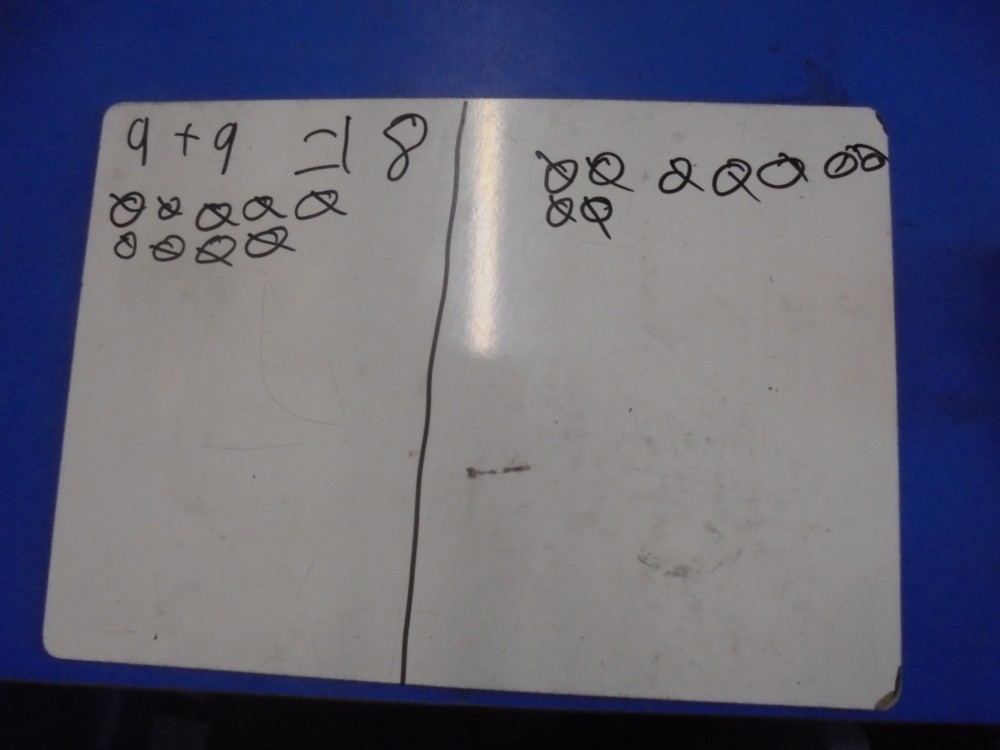 9 + 9 = 18